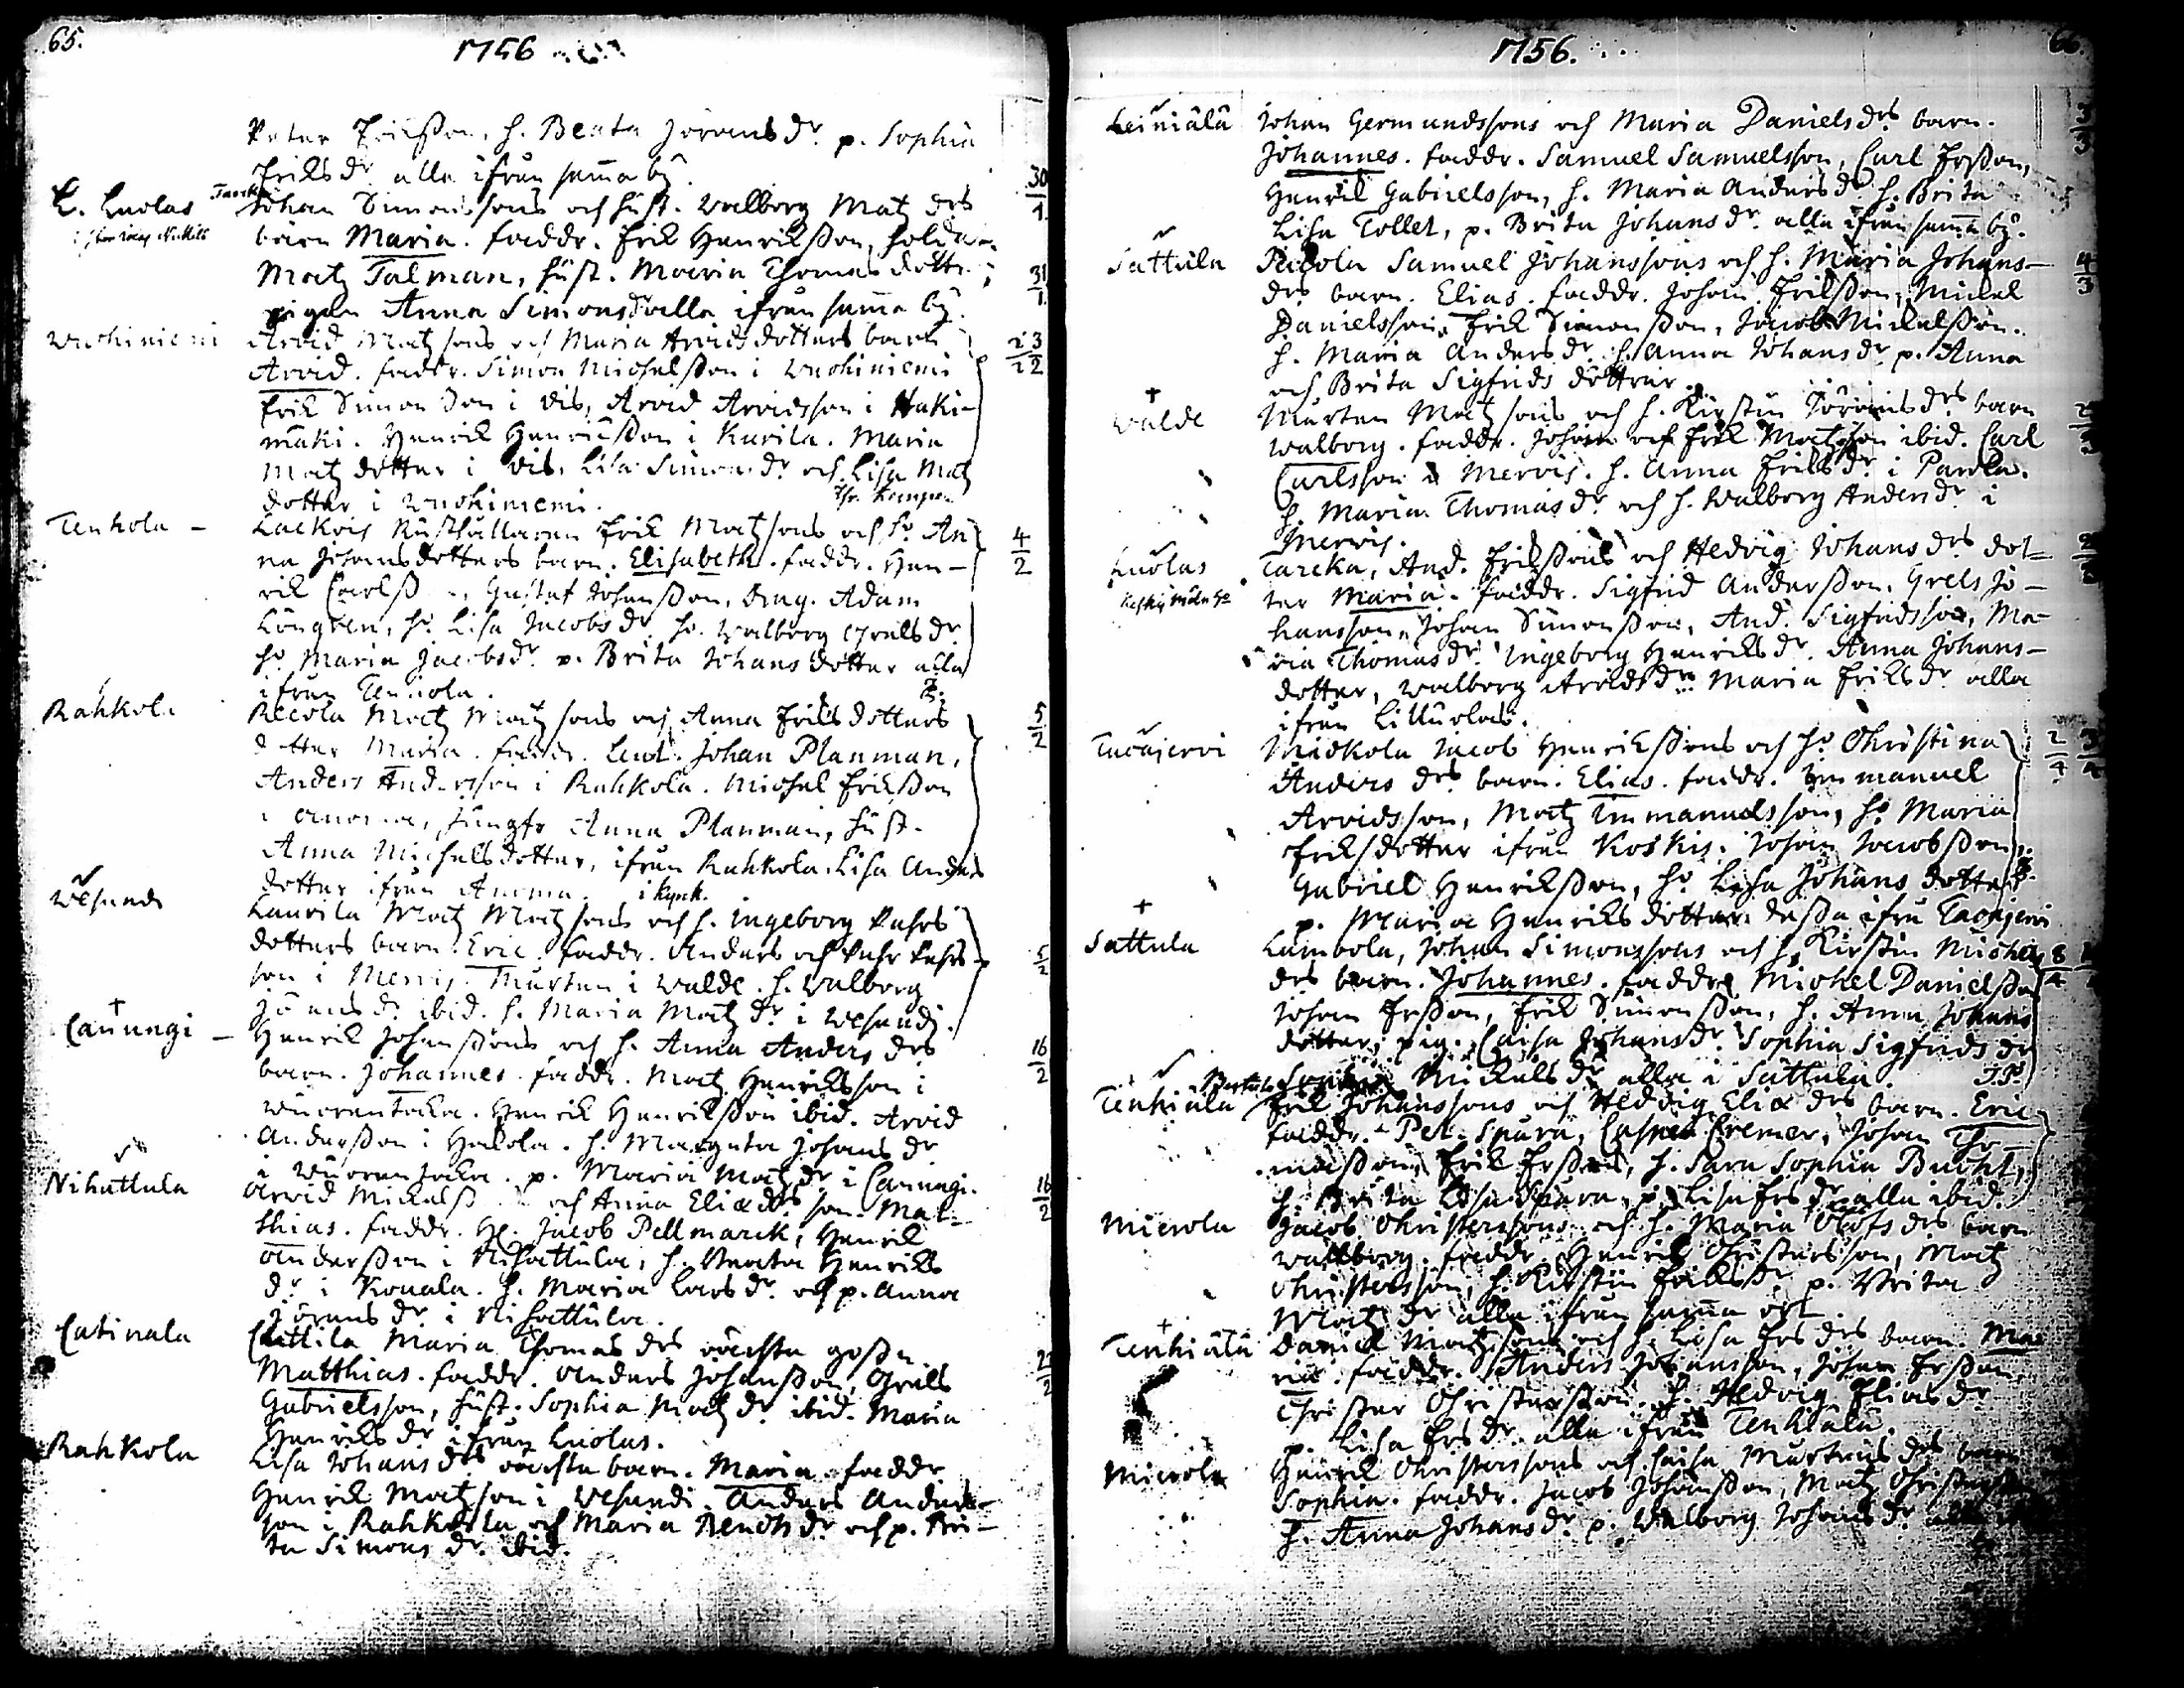 65.
1756
Peter Erichsson, h. Beata Jörans dr. p. Sophia
Eriks dr. alla ifrån samma by
L. Luolas Tareka Johan Simonssons och hust. Walborg Matz drs 30/1
barn Maria. faddr. Erik Henriksson, solda-
Matz Talman, hust. Maria Thomas dotter 31/1
pigan Anna Simonsdr alla ifrån samma by.
Wuohiniemi Arvid Matz sons och Maria Arvids dotters barn 3/2
Arvid. faddr. Simon Michelsson i Wuohiniemi
Erik Simonsson i dis, Arvid Arvidsson i Haki-
mäki. Henrik Henriksson i Kurila. Maria
Matz dotter i dis, Lisa Simons dr och Lisa Matz
dotter i Wuohiniemi.
Tenhola - Laekois Rusthållaren Erik Matzsons och hr An 4/2
na Johansdotters barn. Elisabeth. faddr. Hen-
rik Carlss, Gustaf Johansson, Drag. Adam
Löngren, hr. Lisa Jacobs dr. hr. Walborg Grels dr
hr Maria Jacobsdr. p. Brita Johans dotter alla
ifrån Tenhola.
Rahkola Recola Matz Matz sons och Anna Eriks dotters 5/2
dotter Maria. faddr. Leut. Johan Planman,
Anders Andersson i Rahkola. Michel Eriksson
jungfr Anna Planman, hust.
Anna Michelsdotter, ifrån Rahkola. Lisa Anders
dotter ifrån
Wesunds Laurila Matz Matz sons och h. Ingeborg Pehrs
dotters barn. Eric. faddr. Anders och Pehr Pehrs- 5/2
son i Mervis. Mårten i Walde. h. Walborg
Jörans dr ibid. h. Maria Matz dr i Wesundi.
Canungi - Henrik Johanssons och h. Anna Anders drs 16/2
barn. Johannes. faddr. Matz Henriksson i
Wuorentaka. Henrik Henriksson ibid. Arvid
Andersson i Hakola. h. Margeta Johans dr
i Wuorentaka. p. Maria Matz dr i Canungi.
Nihattula Arvid Mickelss och Anna Eliæ drs son. Mat- 16/2
thias. faddr. Hl. Jacob Pellmarck, Henrik
Andersson i Nihattula, h. Beata Henriks
dr i Kouala. h. Maria Lars dr. och p. Anna
Jörans dr i Nihattula.
Catinala Cattila Maria Thomas drs oächta gosse
Matthias. faddr. Anders Johansson, Grels
Gabrielsson, hust. Sophia Matz dr ibid. Maria
Henriks dr ifrån Luolas.
Rahkola Lisa Johans drs oächta barn. Maria. faddr
Henrik Matzson i Wesundi. Anders Anders-
son i Rahkola och Maria Bendts dr och p. Bri-
ta Simons dr. ibid.
66.
1756.
Leiniälä Johan Germundssons och Maria Daniels drs barn. 3/3
Johannes. faddr. Samuel Samuelsson, Carl Ersson,
Henrik Gabrielsson, h. Maria Anders dr. h. Brita
Lisa Tollet, p. Brita Johans dr. alla ifrån samma by.
Sattula Paçola Samuel Johanssons och h. Maria Johans- 4/3
drs barn. Elias. faddr. Johan Eriksson, Mickel
Danielsson, Erik Simonsson, Jacob Mickelsson.
h. Maria Anders dr. h. Anna Johans dr. p. Anna
och Brita Sigfrids döttrar.
Walde Mårten Matz sons och h. Kirstin Jörans drs barn
Walborg. faddr. Johan och Erik Matzson ibid. Carl
Carlsson i Mervis. h. Anna Eriks dr. i Parola.
h. Maria Thomas dr och h. Walborg Anders dr i
Mervis.
Luolas Tareka, And. Erikssons och Hedvig Johans drs dot-
ter Maria. faddr. Sigfrid Andersson, Grels Jo-
hansson, Johan Simonsson, And. Sigfridsson, Ma-
ria Thomas dr. Ingeborg Henriks dr. Anna Johans-
dotter, Walborg Arvids dr. Maria Eriks dr alla
ifrån Lilluolas.
Tacajervi Mäckola Jacob Henrikssons och hr Christina 2/4 3/4
Anders drs barn. Elias. faddr. Immanuel
Arvidsson, Matz Immanuelsson, hr Maria
Eriksdotter ifrån Koskis. Johan Jacobsson,
Gabriel Henriksson, hr Lisa Johans dotter
p. Maria Henriks dotter dessa ifrån Tacajervi
Sattula Lambola, Johan Simonssons och h. Kirstin Michels 8/4
drs barn. Johannes. faddr. Mickel Danielsson
Johan Ersson, Erik Simonsson, h. Anna Johans
dotter, pig. Caisa Johans dr. Sophia Sigfrids dr
Mickels dr alla i Sattula.
Tenhiälä Erik Johanssons och Hedvig Eliæ drs barn. Eric
faddr. Pet. Spåra, Casper Cremer, Johan Tho-
masson, Erik Ersson, h. Sara Sophia Bucht,
h. Brita Lisa Spåra, p. Lisa Ers dr alla ibid.
Mierola Jacob Christerssons och h. Maria Olofs drs barn
Wallborg. faddr. Henrik Christersson, Matz
Christersson, h. Kirstin Eriks dr. p. Brita
Matz dr alla ifrån samma ort.
Tenhiälä Daniel Matzsons och h. Lisa Ers drs barn. Ma-
ria. faddr. Anders Johansson, Johan Ersson,
Christer Christersson, h. Hedvig Elias dr
p. Lisa Ers dr. alla ifrån Tenhiälä.
Mierola Henrik Christerssons och Caisa Mårtens drs barn
Sophia. faddr. Jacob Johansson, Matz Christersson
h. Anna Johans dr. p. Walborg Johans dr alla